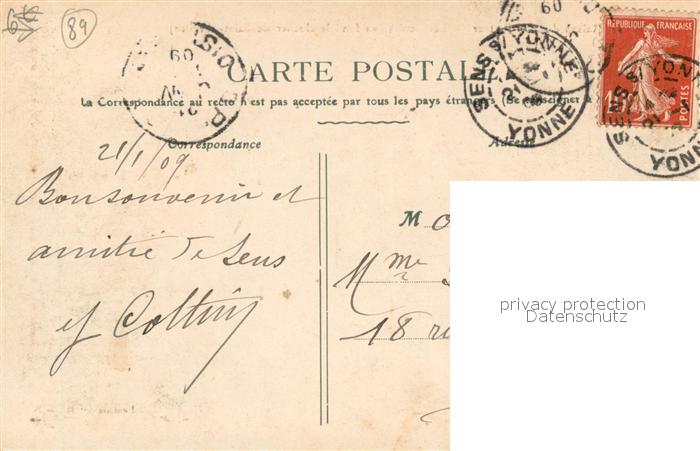 89
CARTE POSTALE
La Correspondance au recto n'est pas acceptée par tous les pays étrangers (Se renseigner à
Correspondance
Adresse
RÉPUBLIQUE FRANÇAISE
POSTES
SENS S/ YONNE
YONNE
SENS S/ YON
YONNE
09
09
21/1/09
Bon souvenir et
amitié de Sens
M
Mme
18 r
privacy protection
Datenschutz